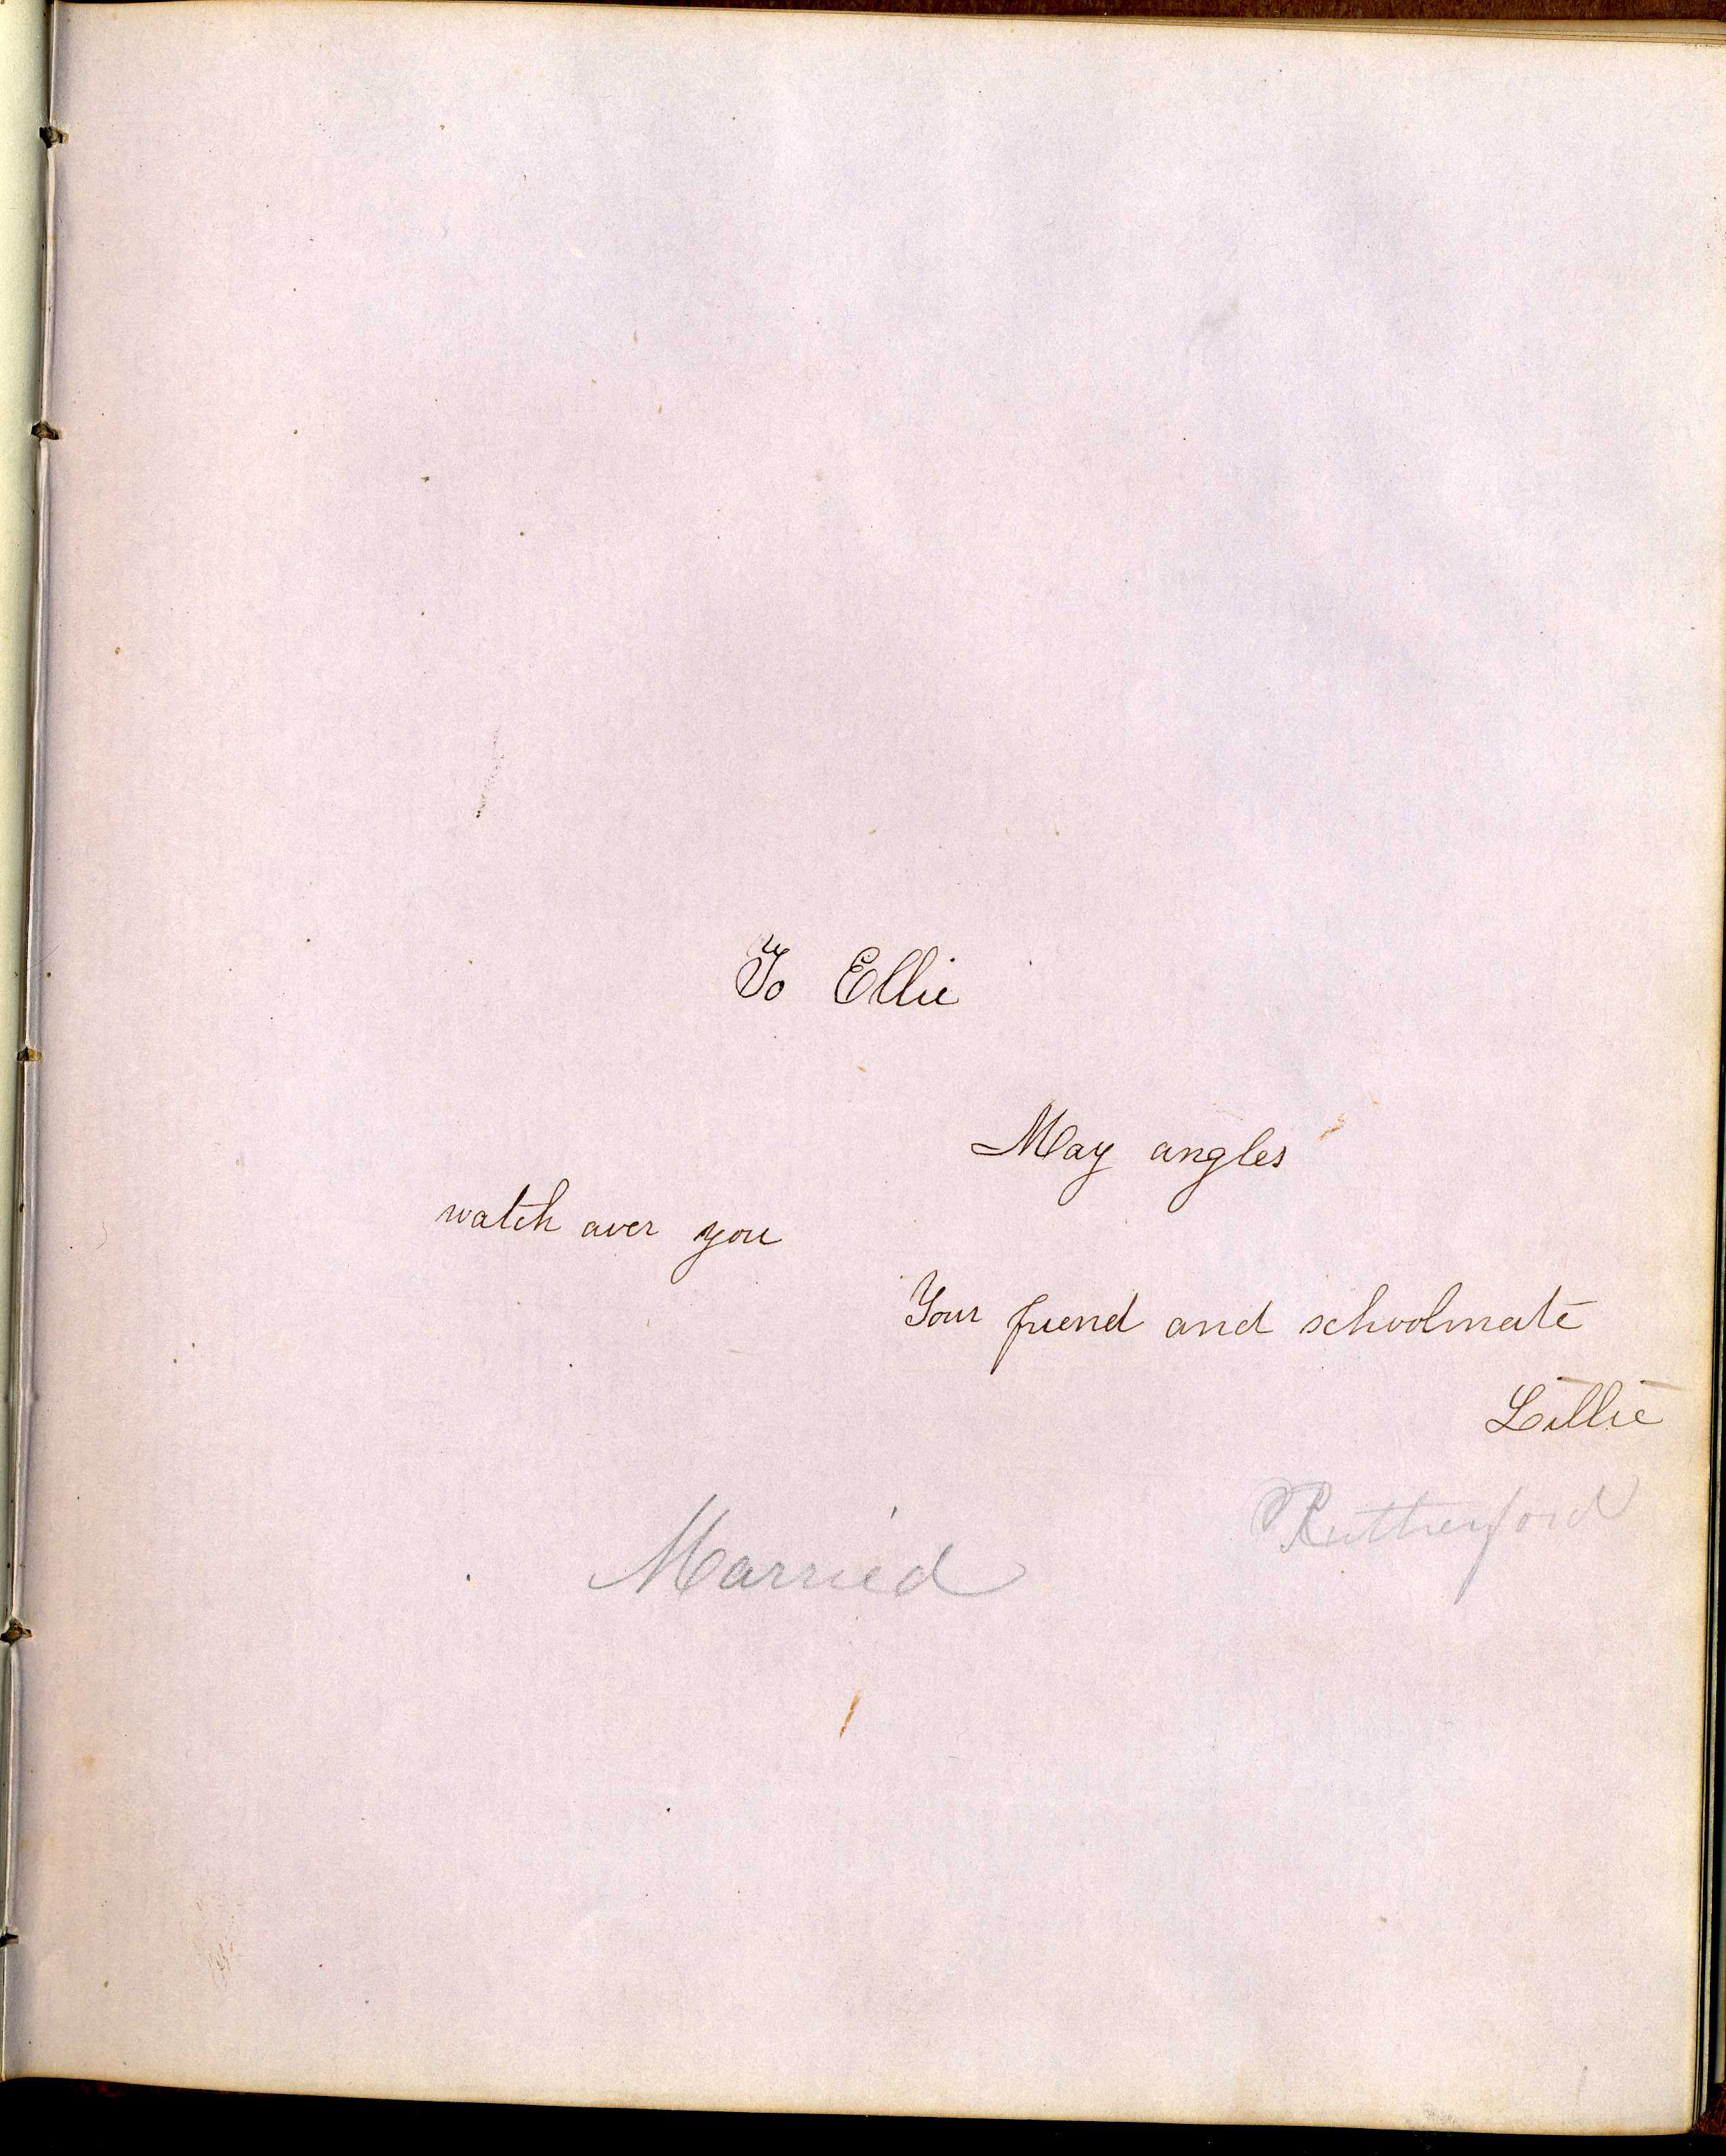 To Ellie
May angles
watch over you
Your friend and schoolmate
Lillie
Rutherford
Married